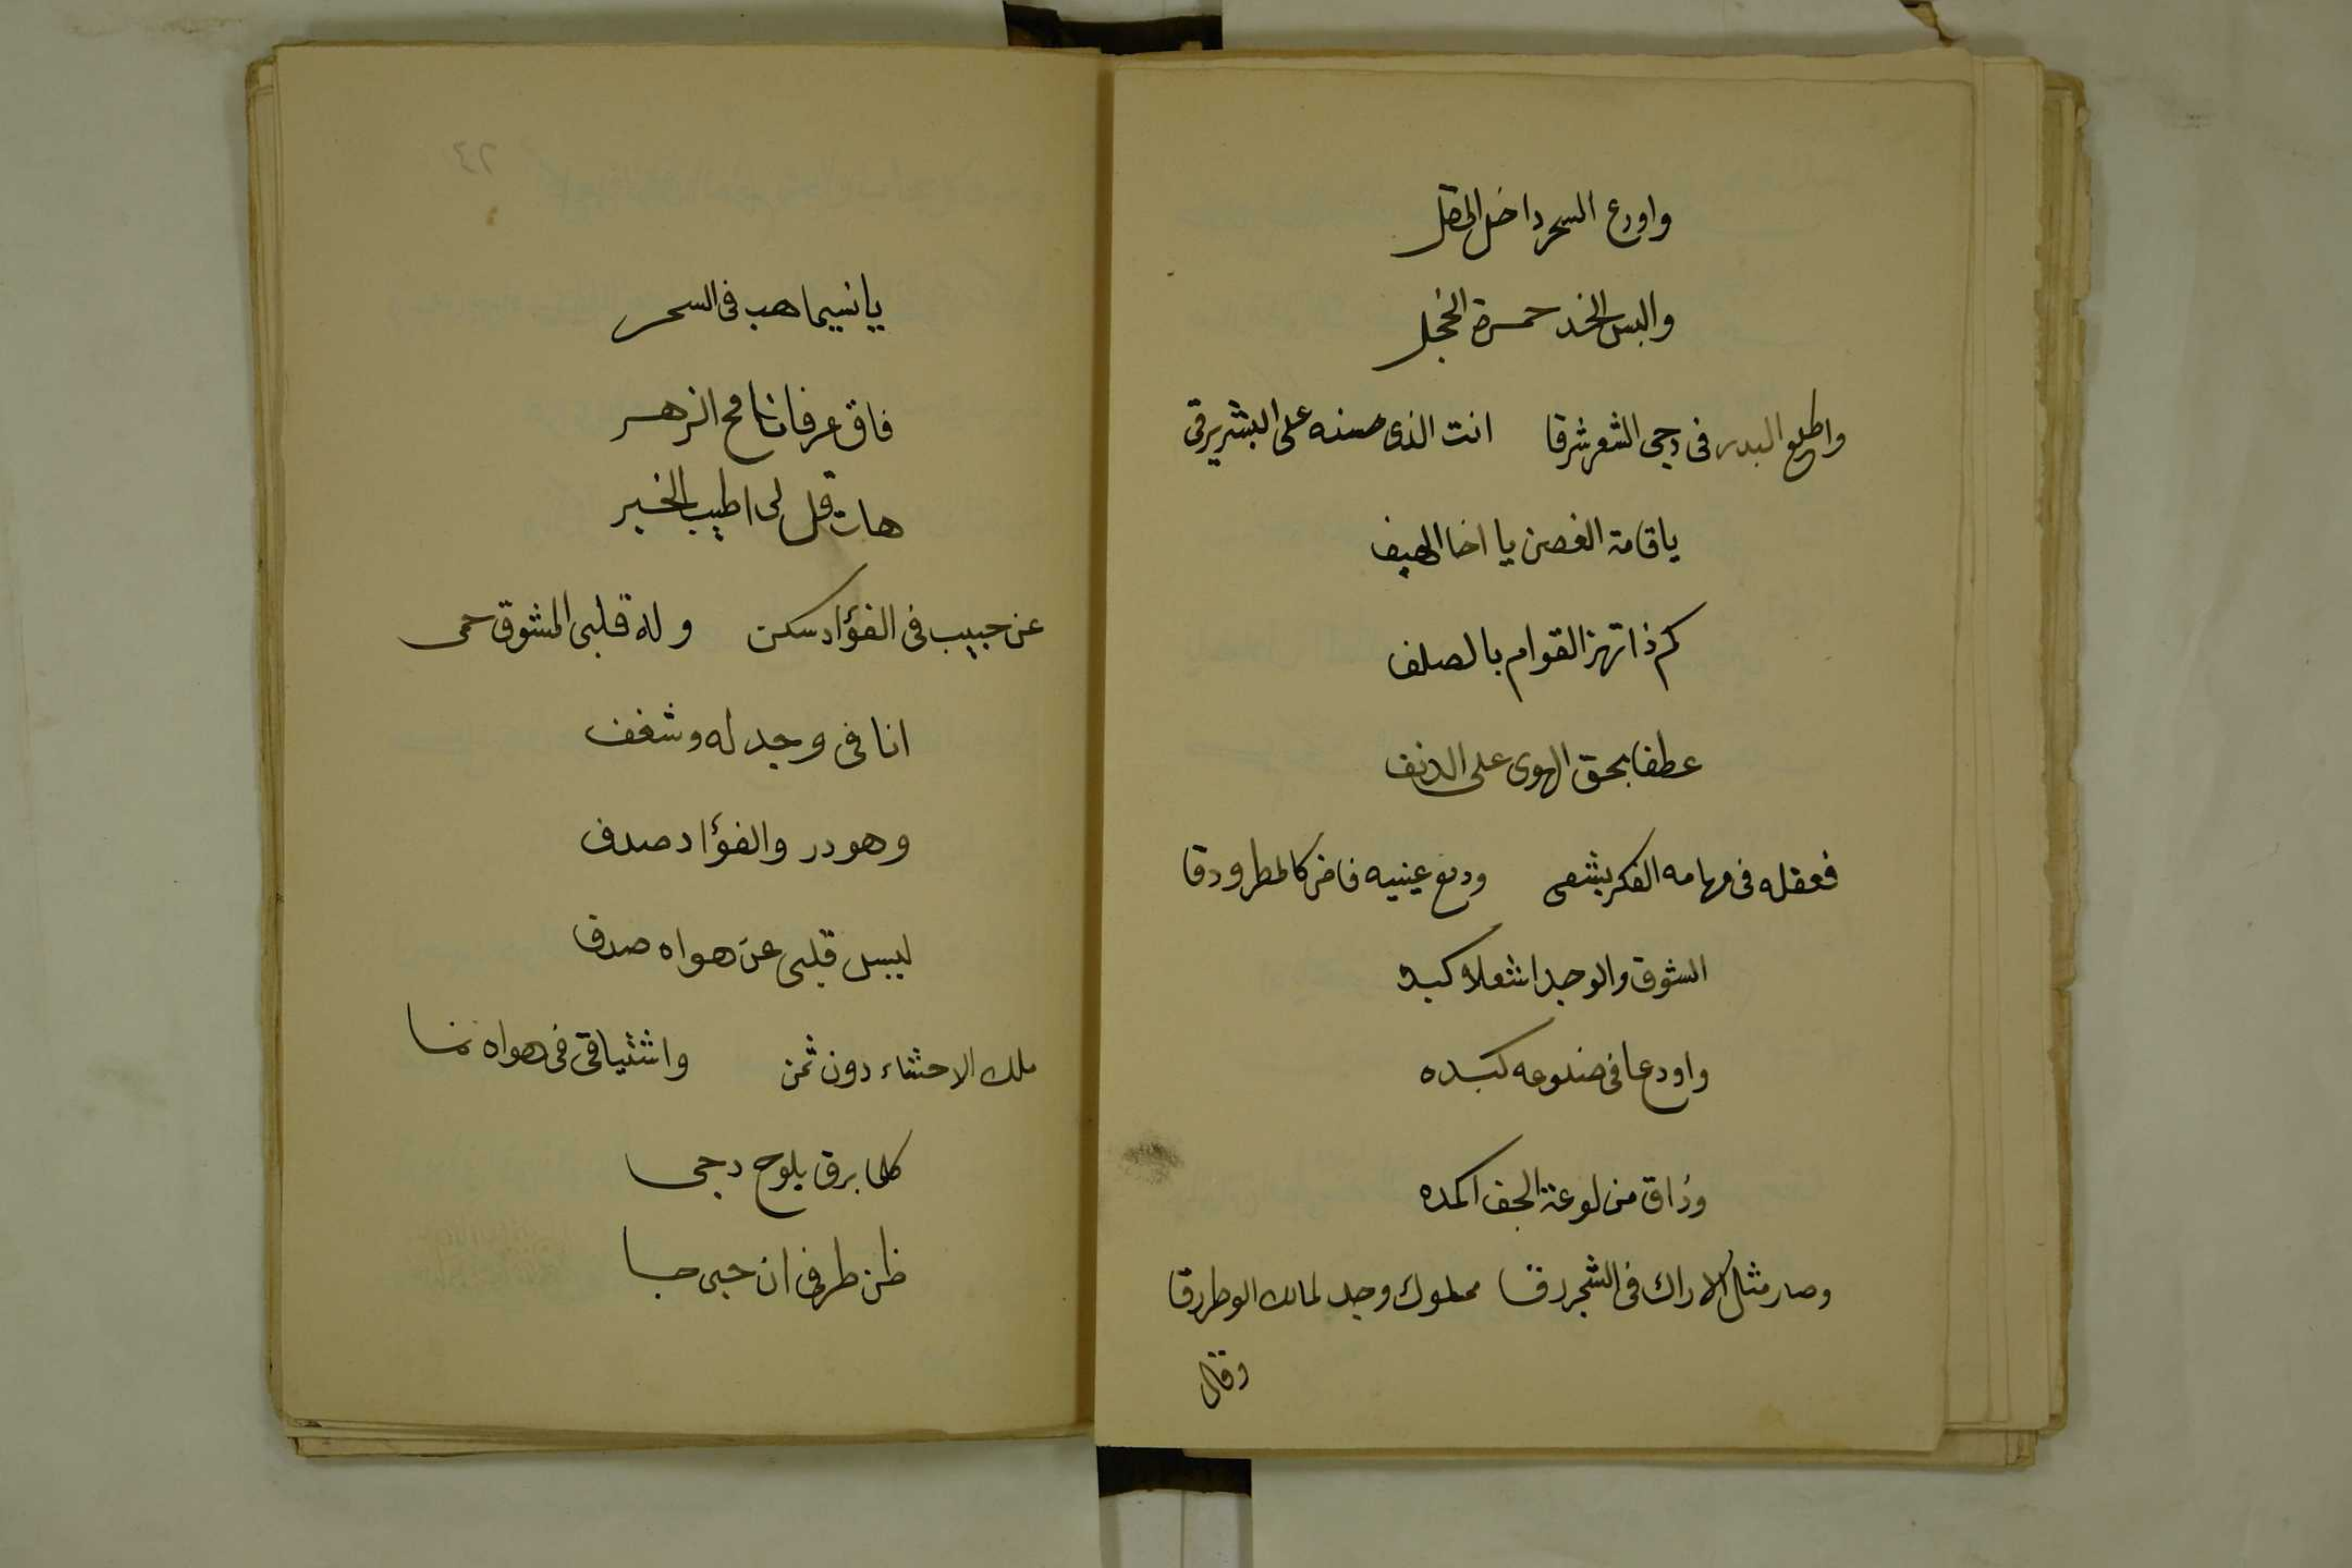 واودع السحر داخل المقل
والبس الخد حمرة الخجل
واطلع البدر فى دجى الشعر شرقا انت الذى حسنه على البشر يرقى
يا قامة الغصن يا اخا الهيف
كم ذا تهز القوام بالصلف
عطفا بحق الهوى على الدنف
فعقله فى مهامه الفكر يشقى ودمع عينيه فاض كالمطر ودقا
الشوق والوجد اشعلا كبده
واودعا فى ضلوعه كبده
وذاق من لوعة الجفا كمده
وصار مثل الاراك فى الشجر دقا مملوك وجد لمالك الوطر رقا
وقال
٦٤
يا نسيما هب فى السحر
فاق عرفا نافح الزهر
هات قل لى اطيب الخبر
عن حبيب فى الفؤاد سكن وله قلبى المشوق حمى
انا فى وجد له وشغف
وهو در والفؤاد صدف
ليس قلبى عن هواه صدف
ملك الاحشاء دون ثمن واشتياقى فى هواه نما
كلما برق يلوح دجى
ظن طرفى ان حبى حبا